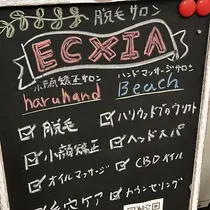 脱毛サロン
ECXIA
小顔矯正サロン
haruhand
ハンドマッサージサロン
Beach
脱毛
小顔矯正
オイルマッサージ
毛穴ケア
ハリウッドブロウリフト
ヘッドスパ
CBDオイル
カウンセリング